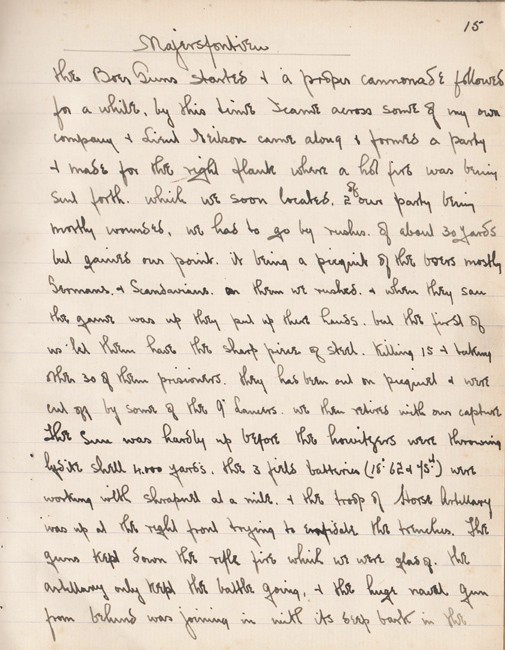 15
Majersfontien
the Boer Guns started & a proper cannonade followed
for a while, by this time I came across some of my own
company & Lieut Neilson came along & formed a party
& made for the right flank where a hot fire was being
sent forth. which we soon located, 2 of our party being
mostly wounded, we had to go by rushes. of about 30 yards
but gained our point. it being a picquit of the boers mostly
Germans. & Scandavians. on them we rushed. & when they saw
the game was up they put up there hands. but the first of
us let them have the sharp piece of steel. Killing 15 & taking
other 30 of them prisioners. they has been out on picquiet & were
cut off by some of the 9th Lancers. we then retired with our capture
The Sun was hardly up before the howitzers were throwing
lydite shell 4.000 yards. the 3 field batteries (18th 62nd & 75th) were
working with shrapnel at a mile. & the troop of Horse Artillary
was up at the right front trying to the trenches. The
guns kept down the rifle fire which we were glad of. the
artillary only kept the battle going, & the huge naval gun
from behind was joining in with its deep bark in the